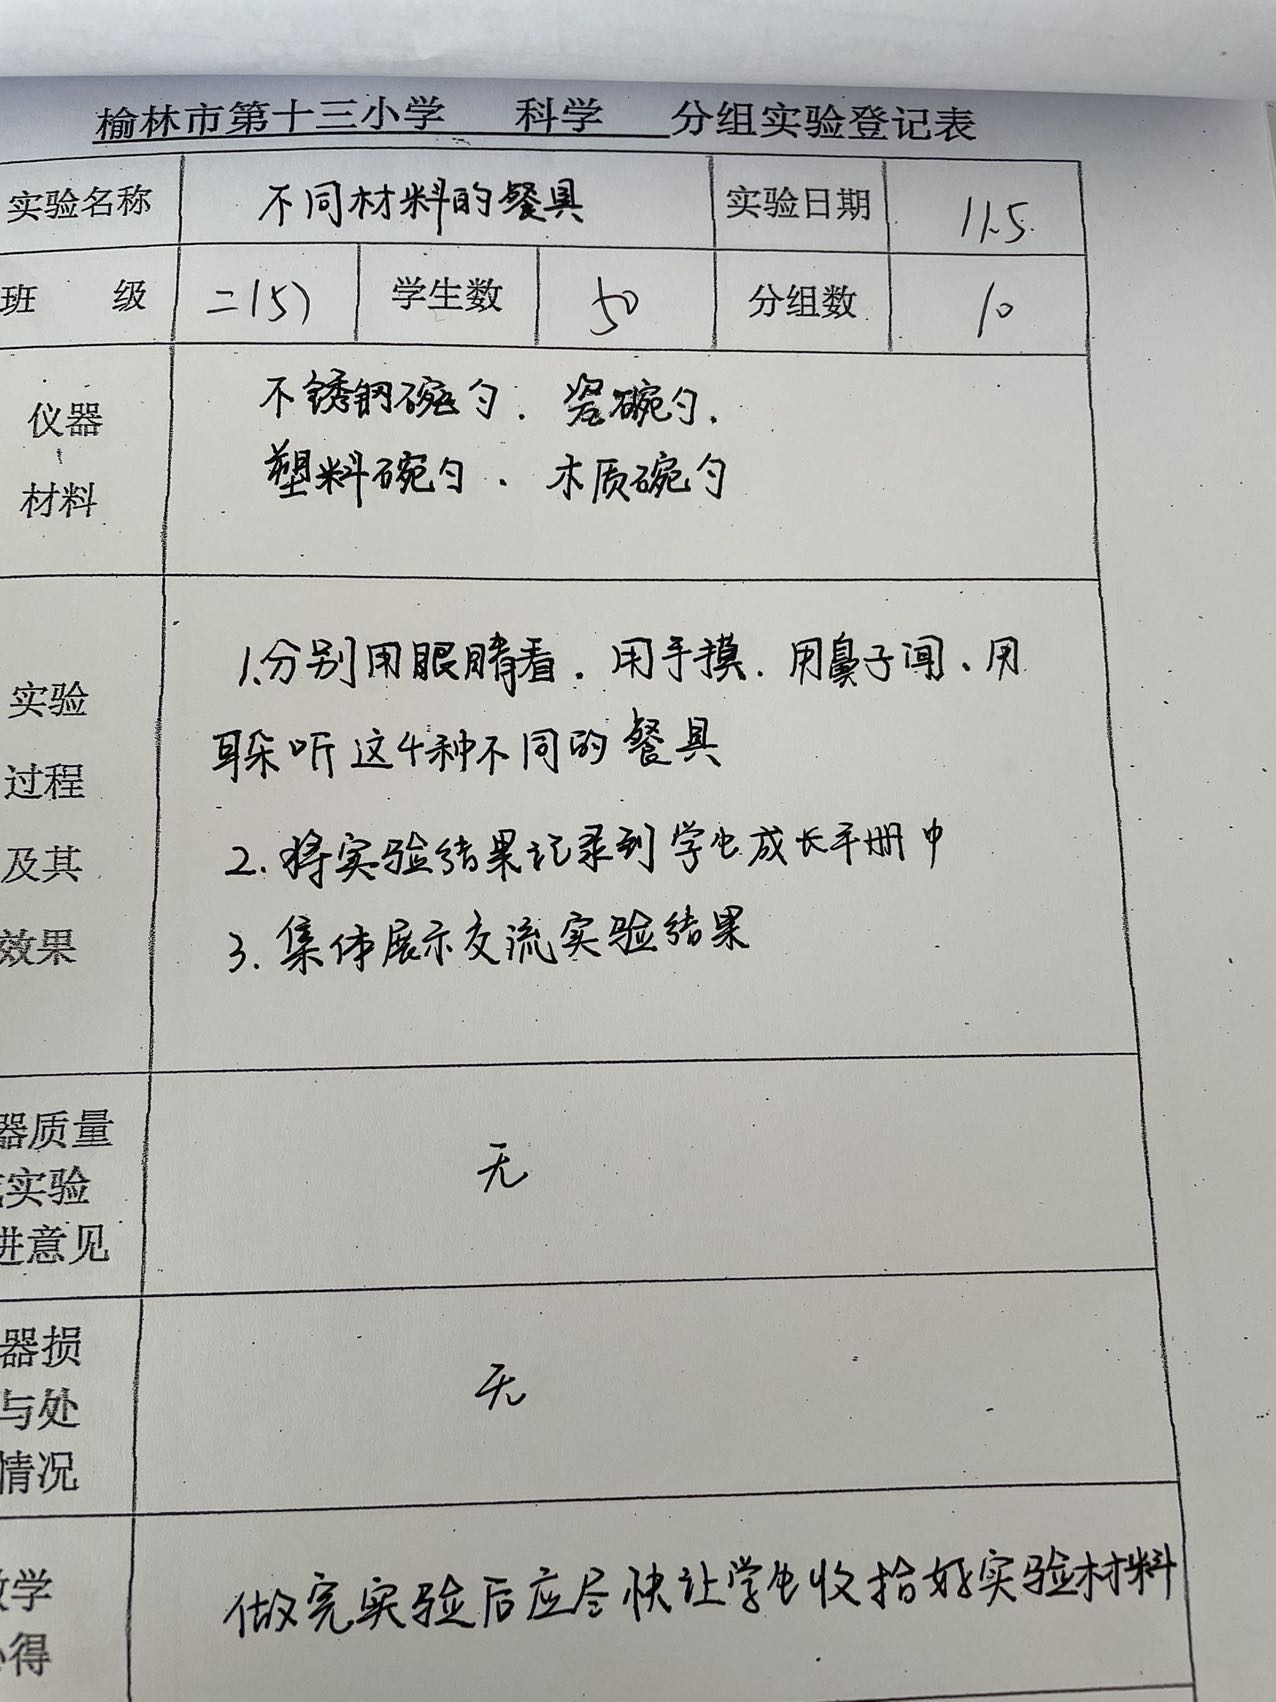 榆林市第十三小学 科学 分组实验登记表
实验名称 不同材料的餐具 实验日期 11.5
班 级 二(5) 学生数 50 分组数 10
仪器
材料
不锈钢碗勺. 瓷碗勺、
塑料碗勺、木质碗勺
实验
过程
及其
效果
1.分别用眼睛看.用手摸.用鼻子闻、用
耳朵听这4种不同的餐具
2.将实验结果记录到学生成长手册中
3.集体展示交流实验结果
器质量
实验
进意见
无
器损
与处
情况
无
学
得
做完实验后应尽快让学生收拾好实验材料